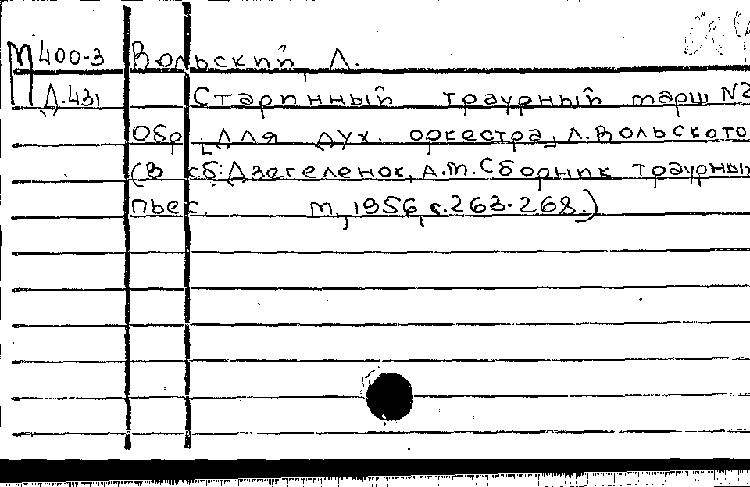 М 400-3 Вольский, Л.
Д.431 Старинный траурный марш №2
Обр. для дух. оркестра Л. Вольского
(В сб.: Дзегеленок, А.М. Сборник траурны
пьес. М., 1956, с. 263-268.)